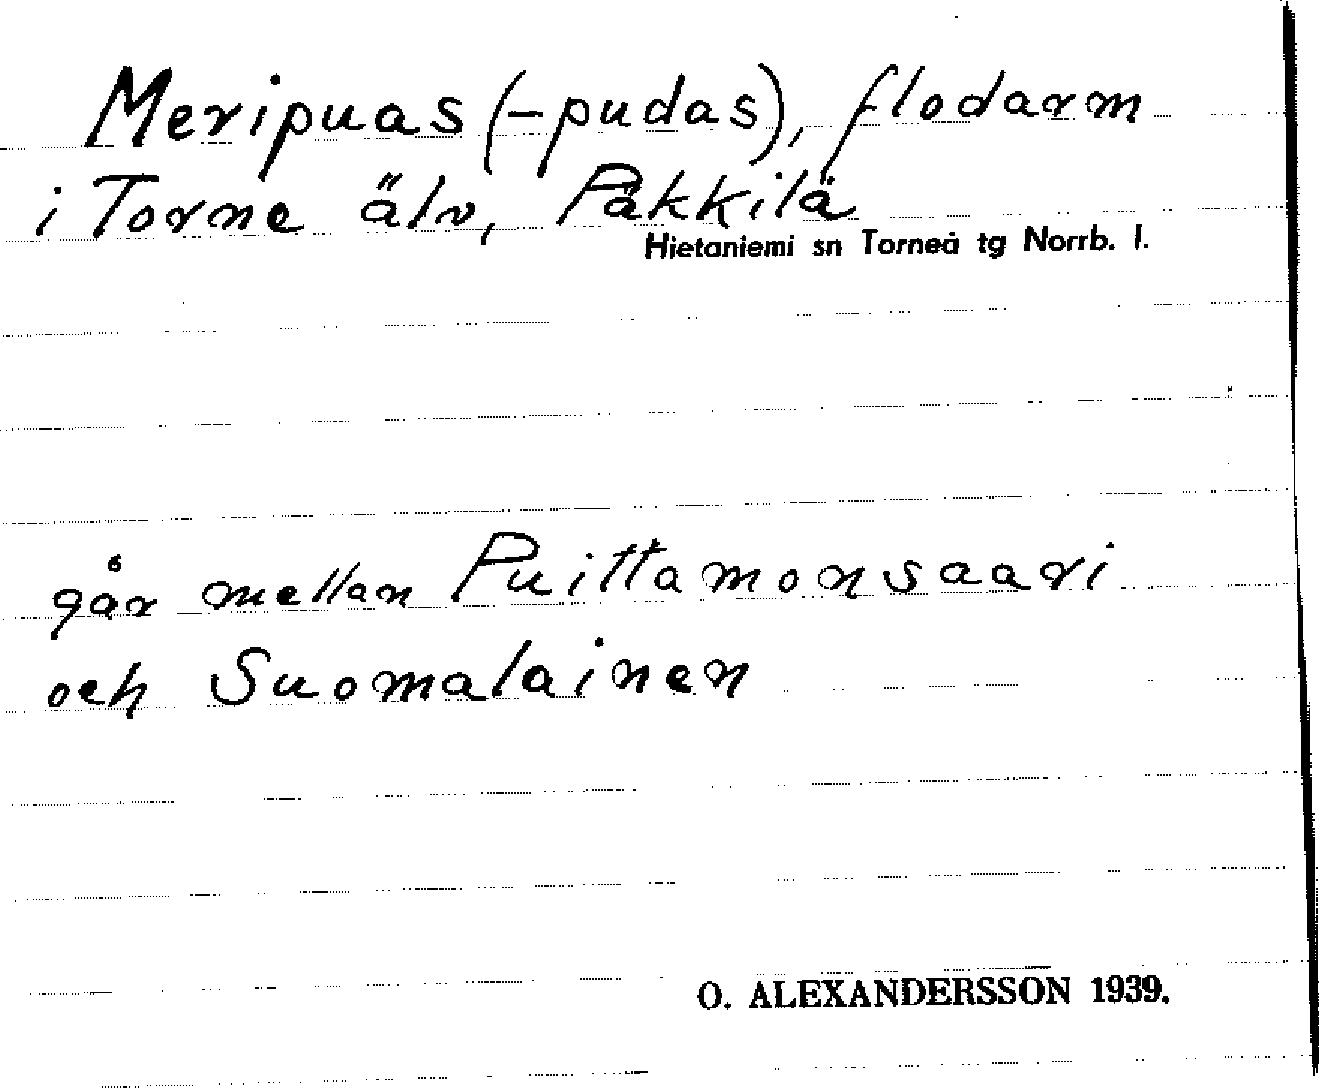 Meripuas (-pudas), flodarm
i Torne älv, Päkkilä
Hietaniemi sn Torneå tg Norrb. l.
går mellan Puittamonsaari
och Suomalainen
O. ALEXANDERSSON 1939.